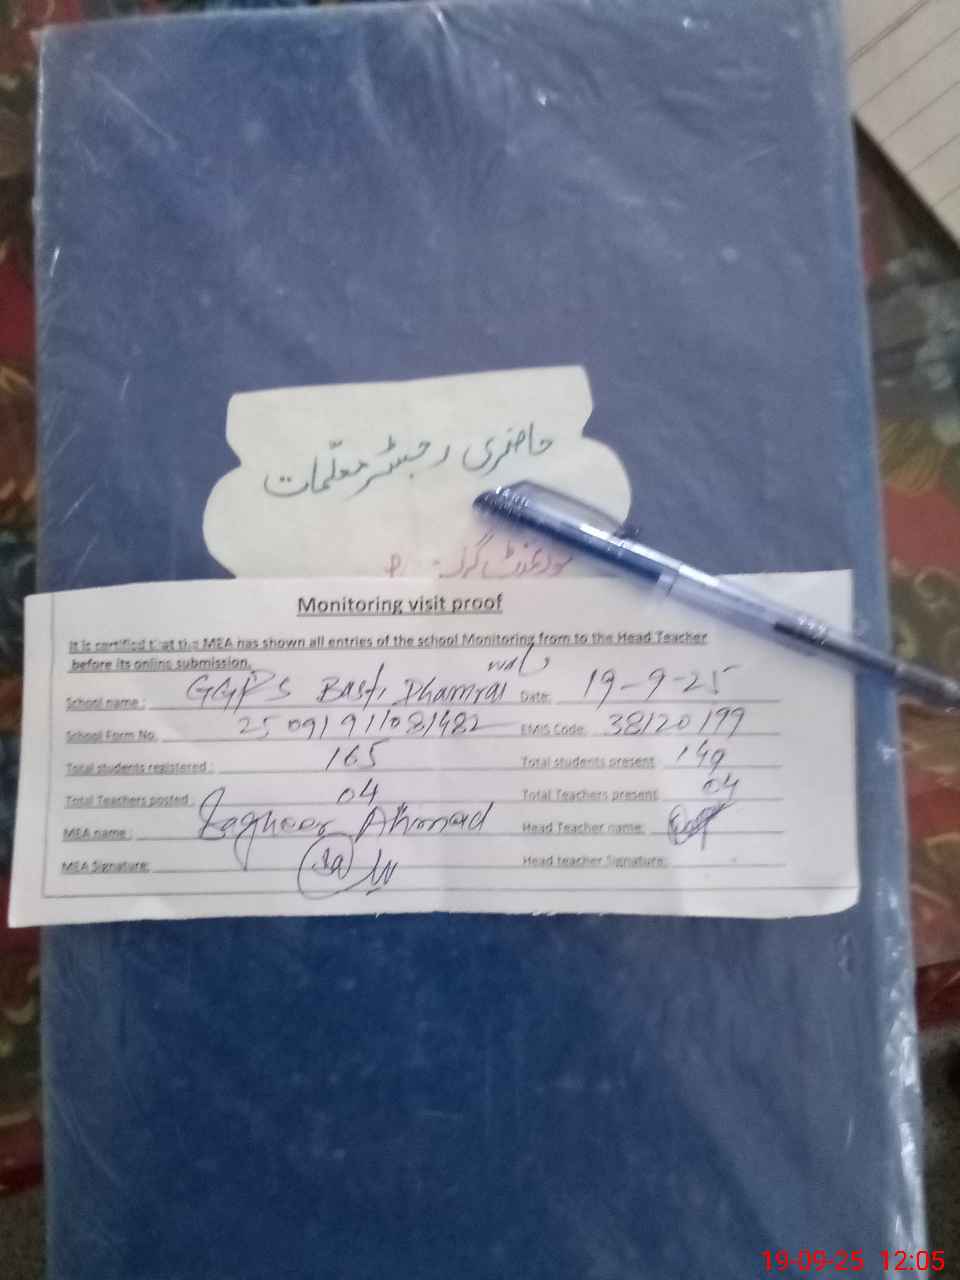 حاضری رجسٹر معلمات
Monitoring visit proof
It is certified that the MEA has shown all entries of the school Monitoring from to the Head Teacher
before its online submission.
School name: GGPS Basti Dhamrai wali Date: 19-9-25
School Form No. 25091911081482 EMIS Code: 38120199
Total students registered: 165 Total students present 149
Total Teachers posted: 04 Total Teachers present 04
MEA name: Sagheer Ahmad Head Teacher name:
MEA Signature: Head teacher Signature:
19-09-25 12:05